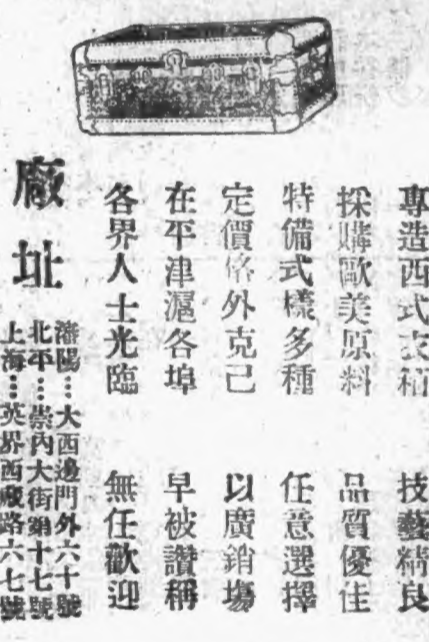 專造西式衣箱 技藝精良
採購歐美原料 品質優佳
特備式樣多種 任意選擇
定價格外克己 以廣銷場
在平津滬各埠 早被讚稱
各界人士光臨 無任歡迎
廠址
瀋陽…大西邊門外六十號
北平…崇內大街第十七號
上海…英界西藏路六七號